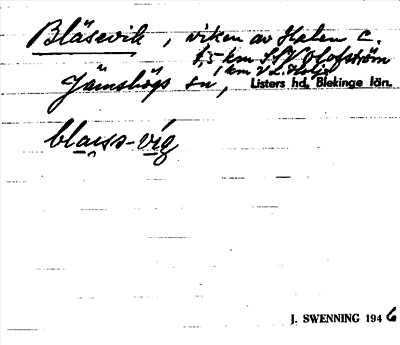 Bläsevik, viken av Halen c.
1,5 km SSV Olofström
1 km V L. Holje
Jämshögs sn, Listers hd, Blekinge län.
blaiss-vig
J. SWENNING 1946